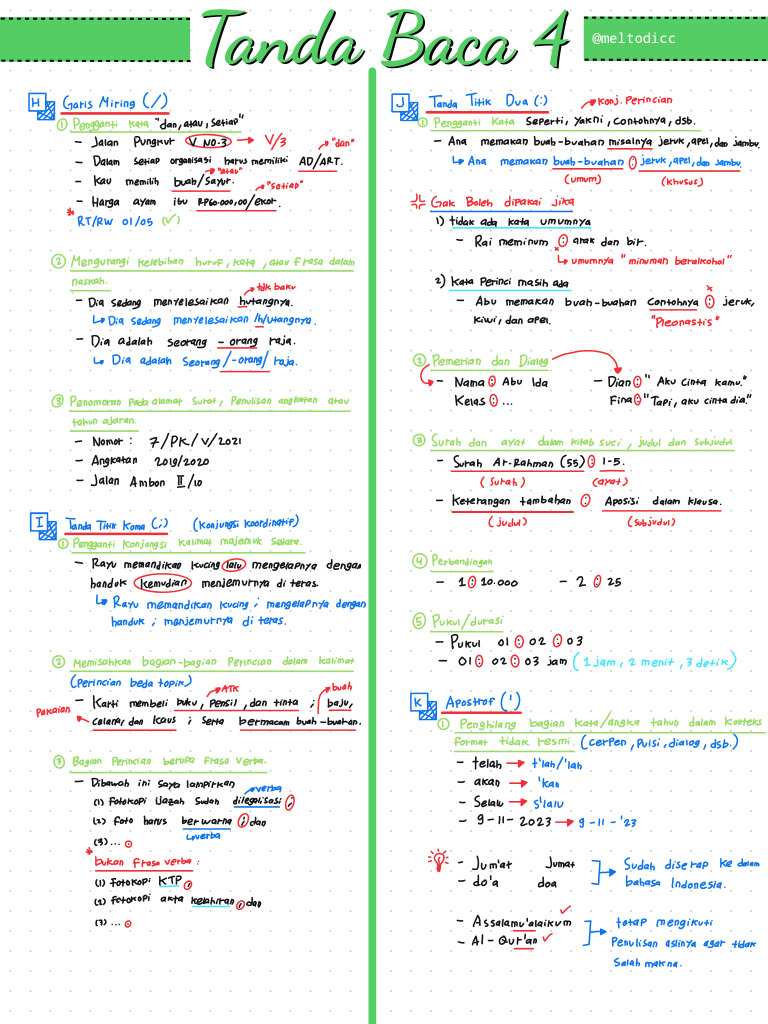 Tanda Baca 4
@meltodicc
H Garis Miring (/)
① Pengganti kata "dan, atau, setiap"
- Jalan Pungkur V NO.3 → V/3
"dan"
- Dalam setiap organisasi harus memiliki AD/ART.
"atau"
- Kau memilih buah/sayur.
"setiap"
- Harga ayam itu RP60.000,00/ekor.
* RT/RW 01/05 (✓)
② Mengurangi kelebihan huruf, kata, atau frasa dalam
naskah.
tdk baku
- Dia sedang menyelesaikan hutangnya.
↳ Dia sedang menyelesaikan /h/utangnya.
- Dia adalah seorang - orang raja.
↳ Dia adalah seorang/-orang/ raja.
③ Penomoran pada alamat surat, Penulisan angkatan atau
tahun ajaran.
- Nomor : 7/PK/V/2021
- Angkatan 2019/2020
- Jalan Ambon II/10
I Tanda Titik Koma (;) (Konjungsi Koordinatif)
① Pengganti konjungsi kalimat majemuk setara.
- Rayu memandikan kucing lalu mengelapnya dengan
handuk kemudian menjemurnya di teras.
↳ Rayu memandikan kucing ; mengelapnya dengan
handuk ; menjemurnya di teras.
② Memisahkan bagian-bagian Perincian dalam kalimat
(Perincian beda topik)
ATK
buah
- Karti membeli buku, Pensil, dan tinta ; baju,
Pakaian
celana, dan kaus ; serta bermacam buah-buahan.
③ Bagian Perincian berupa frasa verba.
- Dibawah ini saya lampirkan
verba
(1) fotokopi ijazah sudah dilegalisasi ;
(2) foto harus berwarna ; dan
verba
(3) ... .
* bukan frasa verba :
(1) fotokopi KTP ,
(2) fotokopi akta kelahiran , dan
(3) ... .
J Tanda Titik Dua (:)
Konj. Perincian
① Pengganti kata seperti, yakni, contohnya, dsb.
- Ana memakan buah-buahan misalnya jeruk, apel, dan jambu.
↳ Ana memakan buah-buahan : jeruk, apel, dan jambu.
(umum) (khusus)
Gak Boleh dipakai jika
1) tidak ada kata umumnya
- Rai meminum : arak dan bir.
x ↳ umumnya "minuman beralkohol"
2) kata Perinci masih ada
x
- Abu memakan buah-buahan contohnya : jeruk,
kiwi, dan apel. "Pleonastis"
② Pemerian dan Dialog
- Nama : Abu Ida
Kelas : ...
- Dian : " Aku cinta kamu."
Fina : "Tapi, aku cinta dia."
③ Surah dan ayat dalam kitab suci, judul dan subjudul
- Surah Ar-Rahman (55) : 1-5.
(surah) (ayat)
- Keterangan tambahan : Aposisi dalam klausa.
(judul) (subjudul)
④ Perbandingan
- 1 : 10.000 - 2 : 25
⑤ Pukul/durasi
- Pukul 01 : 02 : 03
- 01 : 02 : 03 jam (1 jam, 2 menit, 3 detik)
K Apostrof (')
① Penghilang bagian kata/angka tahun dalam konteks
format tidak resmi. (cerpen, Puisi, dialog, dsb.)
- telah → t'lah/'lah
- akan → 'kan
- Selalu → s'lalu
- 9-11-2023 → 9-11-'23
- Jum'at Jumat
- do'a doa
Sudah diserap ke dalam
bahasa Indonesia.
- Assalamu'alaikum ✓
- Al-Qur'an ✓
tetap mengikuti
Penulisan aslinya agar tidak
salah makna.